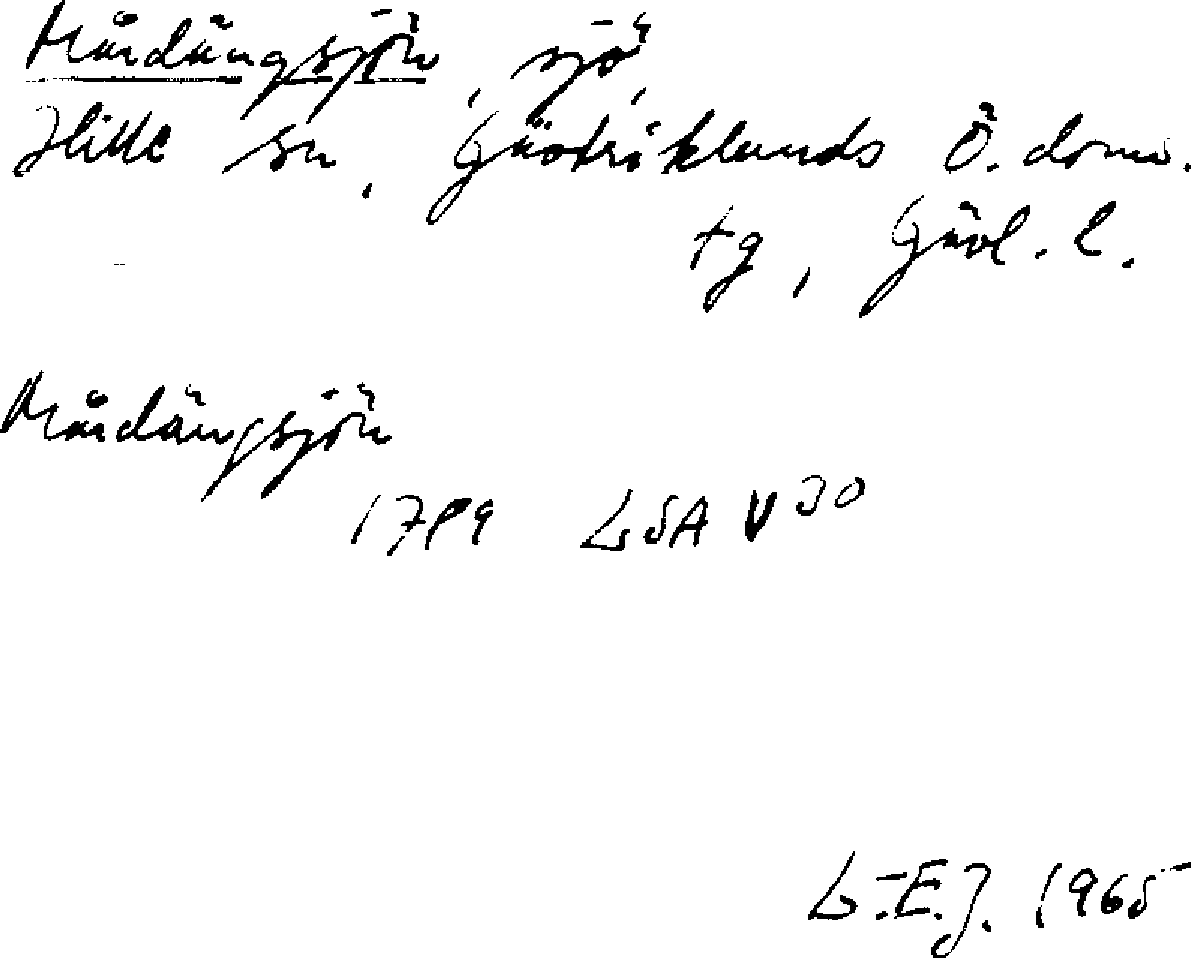 Mårdängsjön, sjö,
Hille sn, Gästriklands Ö. doms.
tg, Gävl. l.
Mårdängsjön
1789 LSA V 30
L-E.J. 1965